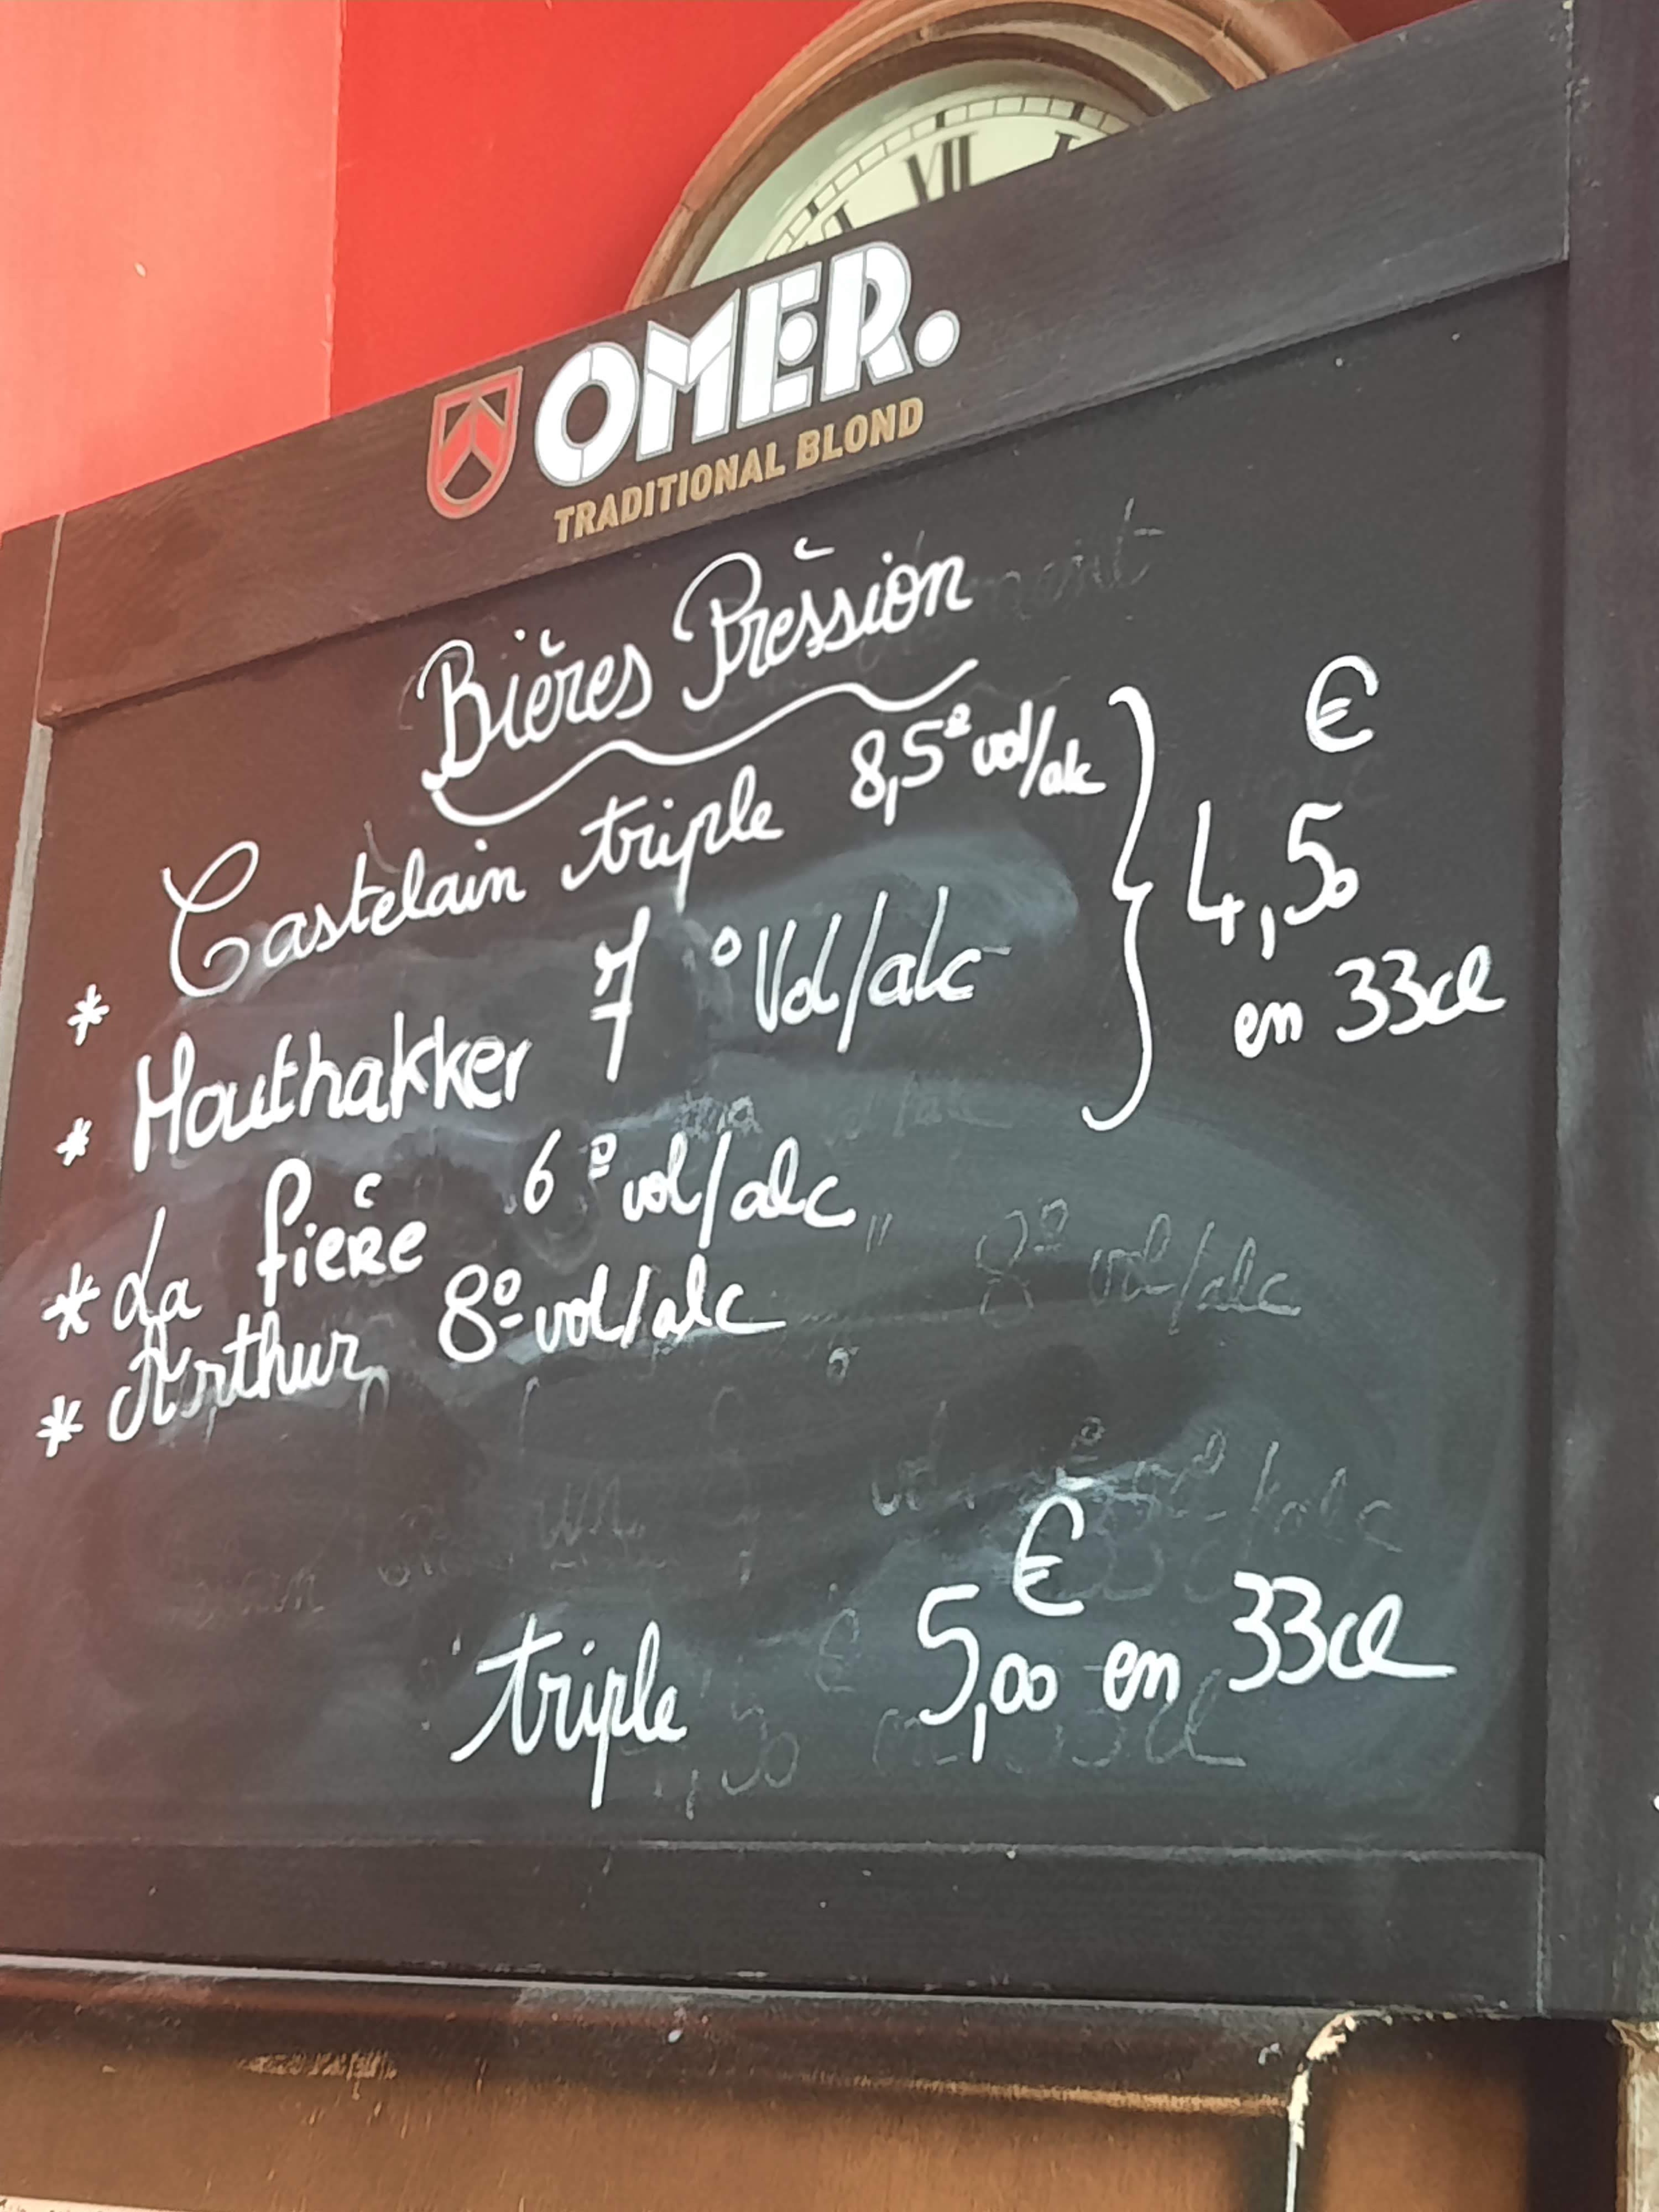 VII
OMER.
TRADITIONAL BLOND
Bières Préssion
* Castelain triple 8,5° vol/alc
* Houthakker 7 °Vol/alc
* La fière 6° vol/alc
* Arthur 8° vol/alc
€
4,50
en 33cl
€
triple 5,00 en 33cl